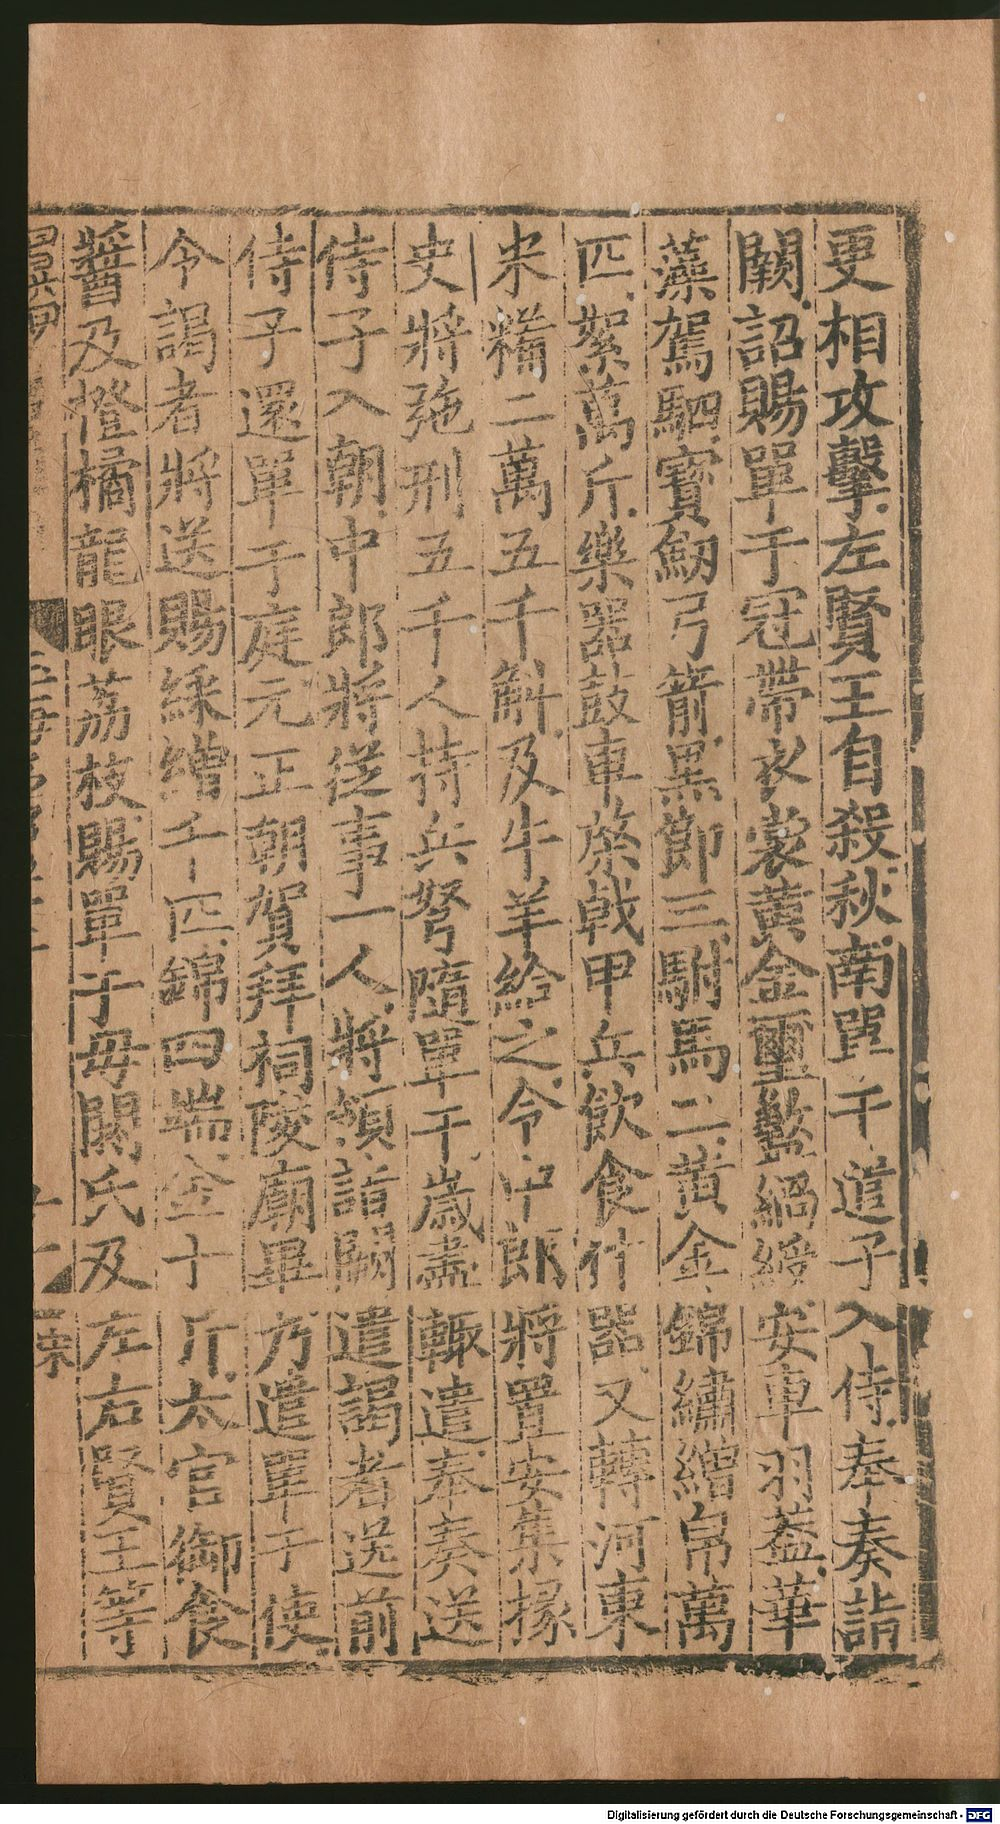 更相攻擊左賢王自殺秋南單于遣子入侍奉奏詣
闕詔賜單于冠帶衣裳黃金璽盭緺綬安車羽蓋華
藻駕駟寶劒弓箭黑節三駙馬二黃金錦繡繒帛萬
匹絮萬斤樂器鼓車棨戟甲兵飲食什器又轉河東
米糒二萬五千斛及牛羊給之令中郎將置安集掾
史將弛刑五千人持兵弩隨單于歲盡輙遣奉奏送
侍子入朝中郎將從事一人將領詣闕遣謁者送前
侍子還單于庭元正朝賀拜祠陵廟畢乃遣單于使
令謁者將送賜綵繒千匹錦四端金十斤太官御食
醬及橙橘龍眼荔枝賜單于母閼氏及左右賢王等
Digitalisierung gefördert durch die Deutsche Forschungsgemeinschaft - DFG